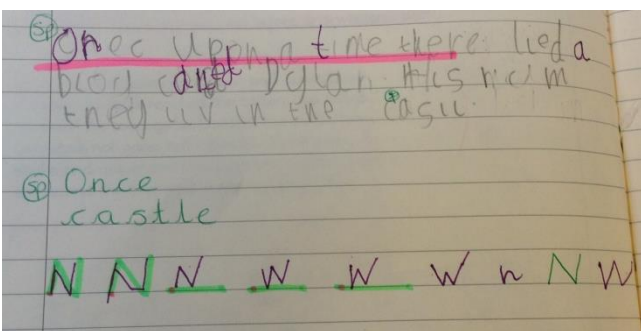 sp Onec Upon a time there lied a
Dylan His
they liv in the casll
sp Once
castle
N N N W W W n N W